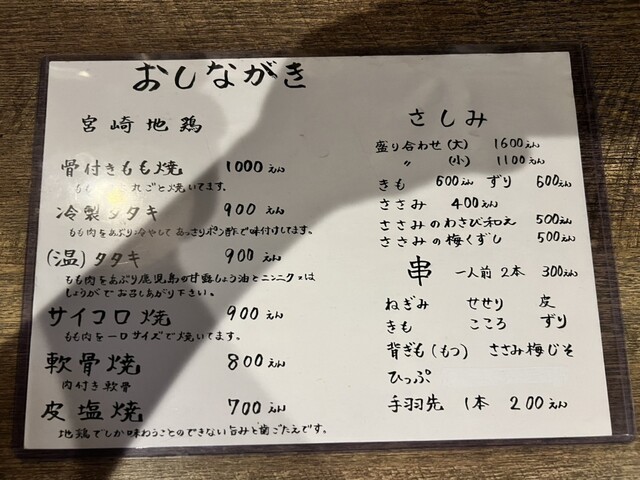 おしながき
宮崎地鶏
骨付きもも焼 1000えん
もも 丸ごと焼いてます。
冷製タタキ 900えん
もも肉をあぶり冷やして あっさりポン酢で味付けしてます。
(温)タタキ 900えん
もも肉をあぶり鹿児島の甘露しょう油とニンニク又は
しょうがでお召しあがり下さい。
サイコロ焼 900えん
もも肉を一口サイズで焼いてます。
軟骨焼 800えん
肉付き軟骨
皮塩焼 700えん
地鶏でしか味わうことのできない旨みと歯ごたえです。
さしみ
盛り合わせ(大) 1600えん
〃 (小) 1100えん
きも 600えん ずり 600えん
ささみ 400えん
ささみのわさび和え 500えん
ささみの梅くずし 500えん
串 一人前 2本 300えん
ねぎみ せせり 皮
きも こころ ずり
背ぎも(もつ) ささみ梅じそ
ひっぷ
手羽先 1本 200えん